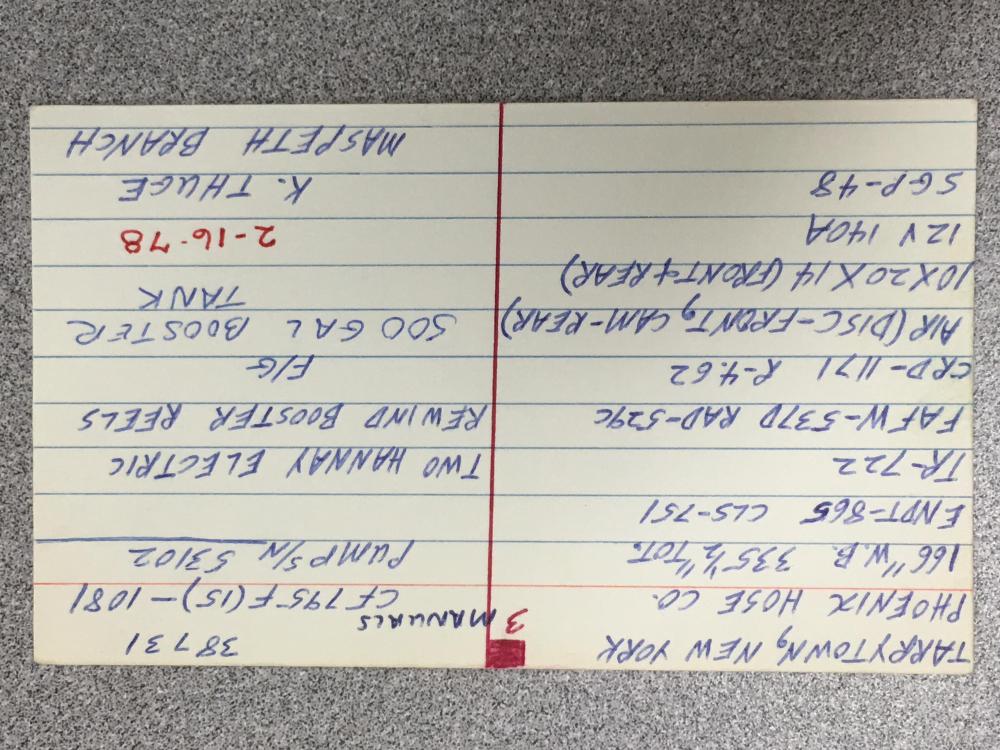 TARRYTOWN, NEW YORK
PHOENIX HOSE CO.
166" W.B. 335 1/2" TOT.
ENDT-865 CLS-751
TR-722
FAFW-537D RAD-529C
CRD-1171 R-4.62
AIR (DISC-FRONT, CAM-REAR)
10X20X14 (FRONT & REAR)
12V 140A
SGP-48
38731
3 MANUALS
CF795F(15)-1081
PUMP S/N 53102
TWO HANNAY ELECTRIC
REWIND BOOSTER REELS
F/G
500 GAL BOOSTER
TANK
2-16-78
K. THUGE
MASPETH BRANCH